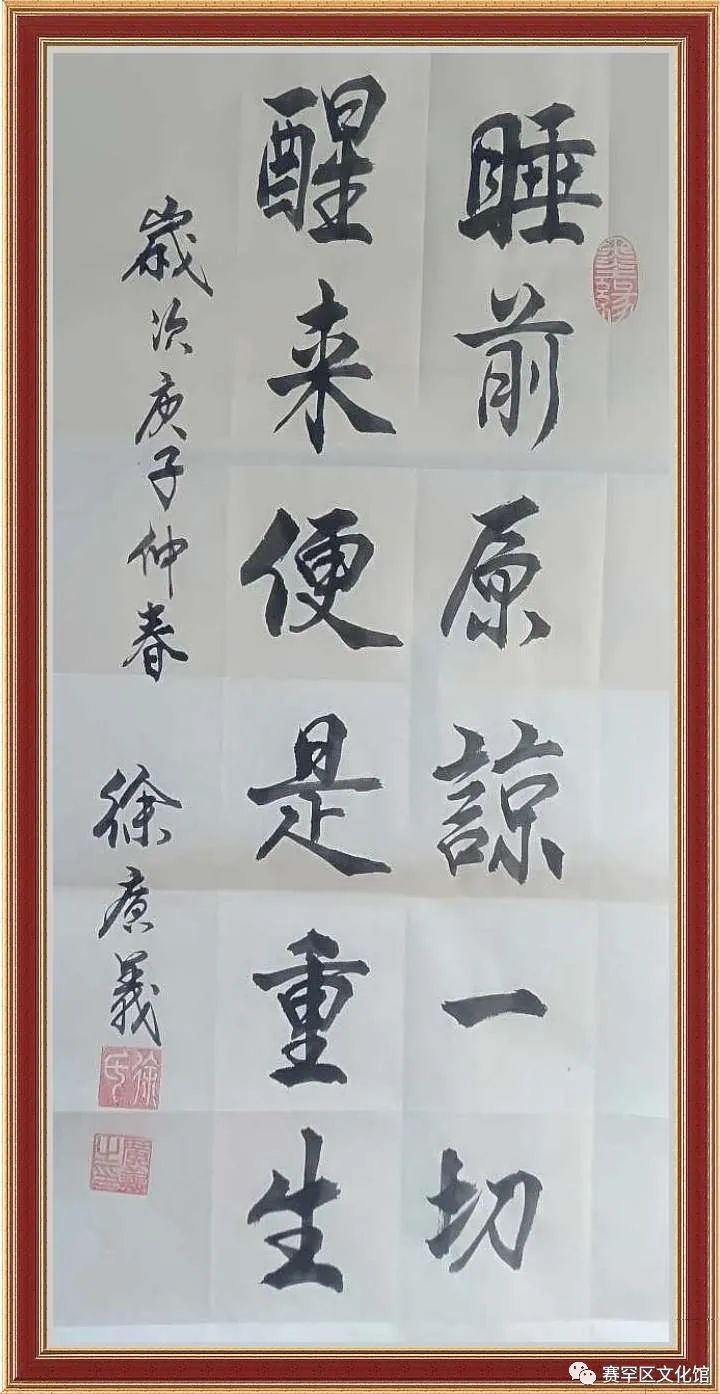 睡前原諒一切
醒来便是重生
歲次庚子仲春 徐廣義
徐氏
赛罕区文化馆